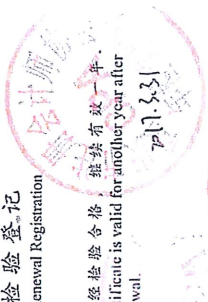 检验登记
enewal Registration
经检验合格，继续有效一年。
ificate is valid for another year after
wal.
2017.3.31